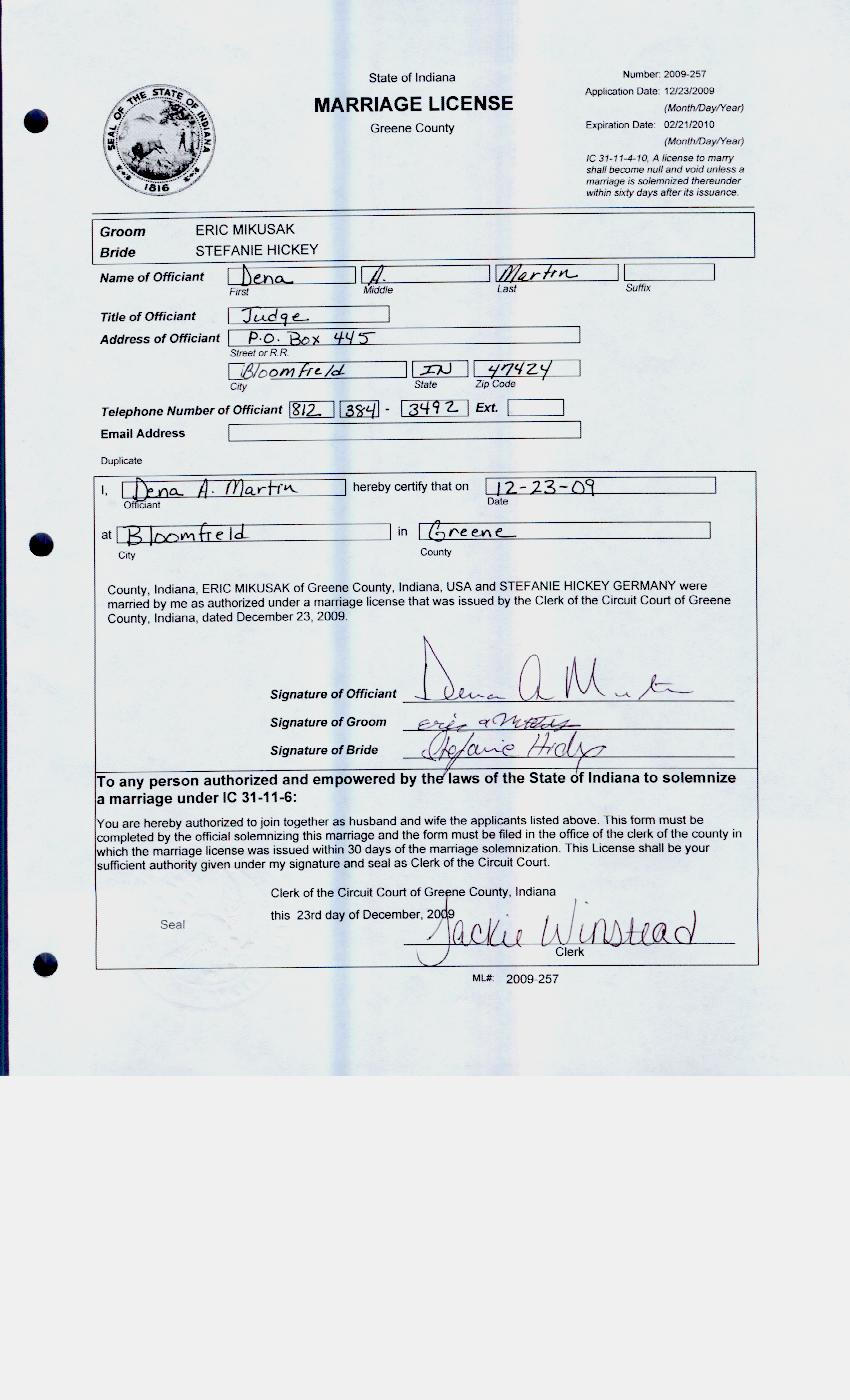 State of Indiana
MARRIAGE LICENSE
Greene County
Number: 2009-257
Application Date: 12/23/2009
(Month/Day/Year)
Expiration Date: 02/21/2010
(Month/Day/Year)
IC 31-11-4-10, A license to marry
shall become null and void unless a
marriage is solemnized thereunder
within sixty days after its issuance.
SEAL OF THE STATE OF INDIANA
1816
Groom ERIC MIKUSAK
Bride STEFANIE HICKEY
Name of Officiant Dena A. Martin
First Middle Last Suffix
Title of Officiant Judge
Address of Officiant P.O. Box 445
Street or R.R.
Bloomfield IN 47424
City State Zip Code
Telephone Number of Officiant 812 384 - 3492 Ext.
Email Address
Duplicate
I, Dena A. Martin hereby certify that on 12-23-09
Officiant Date
at Bloomfield in Greene
City County
County, Indiana, ERIC MIKUSAK of Greene County, Indiana, USA and STEFANIE HICKEY GERMANY were
married by me as authorized under a marriage license that was issued by the Clerk of the Circuit Court of Greene
County, Indiana, dated December 23, 2009.
Signature of Officiant Dena A Martin
Signature of Groom
Signature of Bride Stefanie
To any person authorized and empowered by the laws of the State of Indiana to solemnize
a marriage under IC 31-11-6:
You are hereby authorized to join together as husband and wife the applicants listed above. This form must be
completed by the official solemnizing this marriage and the form must be filed in the office of the clerk of the county in
which the marriage license was issued within 30 days of the marriage solemnization. This License shall be your
sufficient authority given under my signature and seal as Clerk of the Circuit Court.
Clerk of the Circuit Court of Greene County, Indiana
this 23rd day of December, 2009
Seal
Jackie Winstead
Clerk
ML#: 2009-257